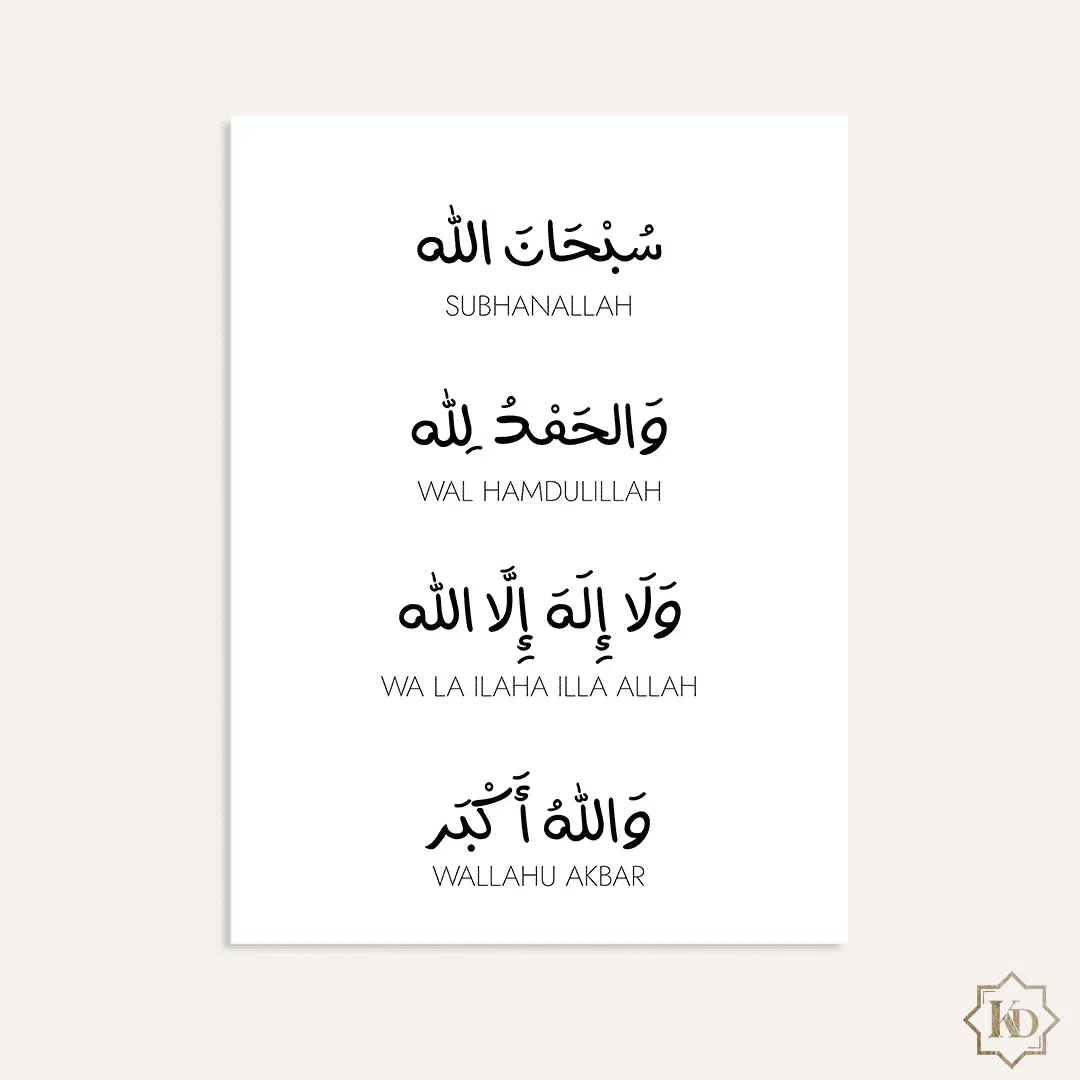 سُبْحَانَ اللّٰه
SUBHANALLAH
وَالحَمْدُ لِلّٰه
WAL HAMDULILLAH
وَلَا إِلَهَ إِلَّا اللّٰه
WA LA ILAHA ILLA ALLAH
وَاللّٰهُ أَكْبَر
WALLAHU AKBAR
KD